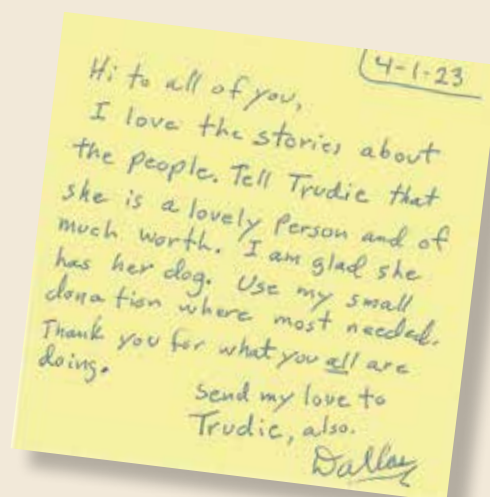 4-1-23
Hi to all of you,
I love the stories about
the people. Tell Trudie that
she is a lovely Person and of
much worth. I am glad she
has her dog. Use my small
donation where most needed.
Thank you for what you all are
doing.
Send my love to
Trudie, also.
Dallas